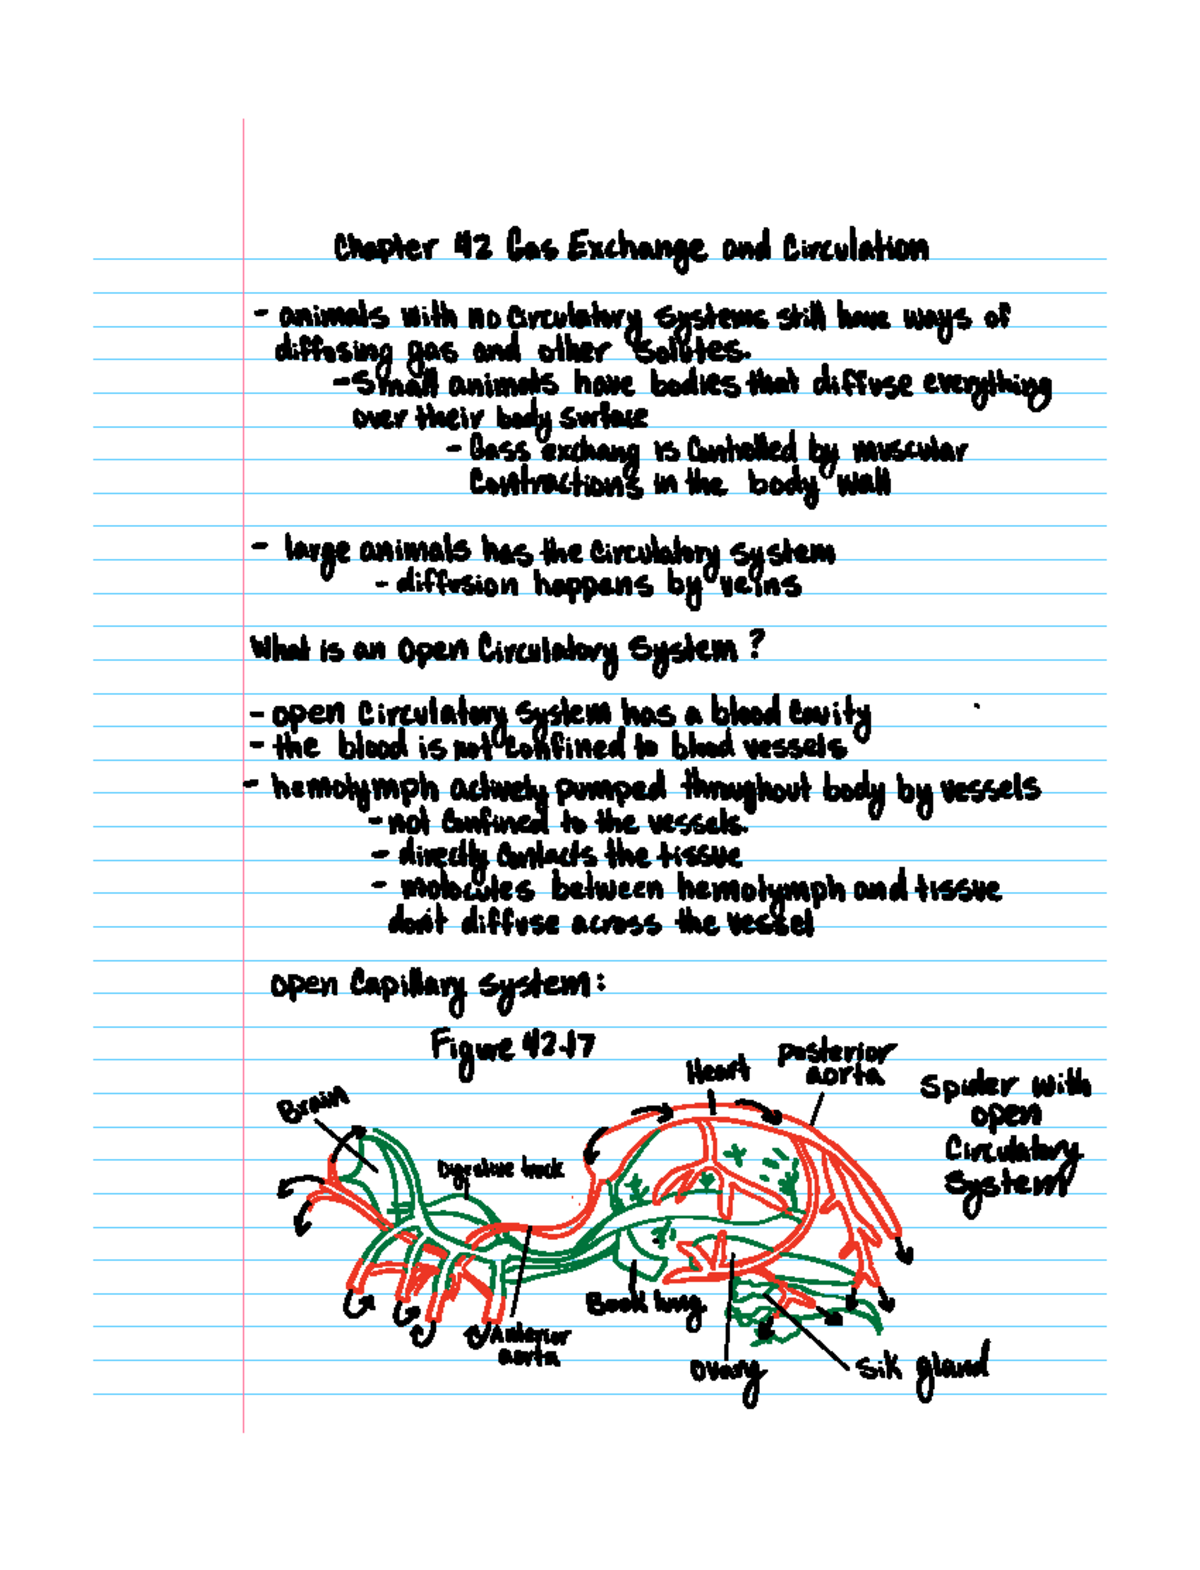 Chapter 42 Gas Exchange and Circulation
- animals with no circulatory systems still have ways of
diffusing gas and other solutes.
- Small animals have bodies that diffuse everything
over their body surface
- Gass exchang is controlled by muscular
contractions in the body wall
- large animals has the circulatory system
- diffusion happens by veins
What is an Open Circulatory System?
- open circulatory system has a blood cavity
- the blood is not confined to blood vessels
- hemolymph actively pumped throughout body by vessels
- not confined to the vessels.
- directly contacts the tissue
- molocules between hemolymph and tissue
don't diffuse across the vessel
open capillary system:
Figure 42.17
Heart
posterior
aorta
Spider with
open
Circulatory
System
Brain
Digestive track
Book lung
Anterior
aorta
Ovary
Sik gland